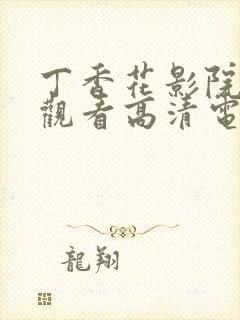 丁香花影院
觀看高清電
龍翔